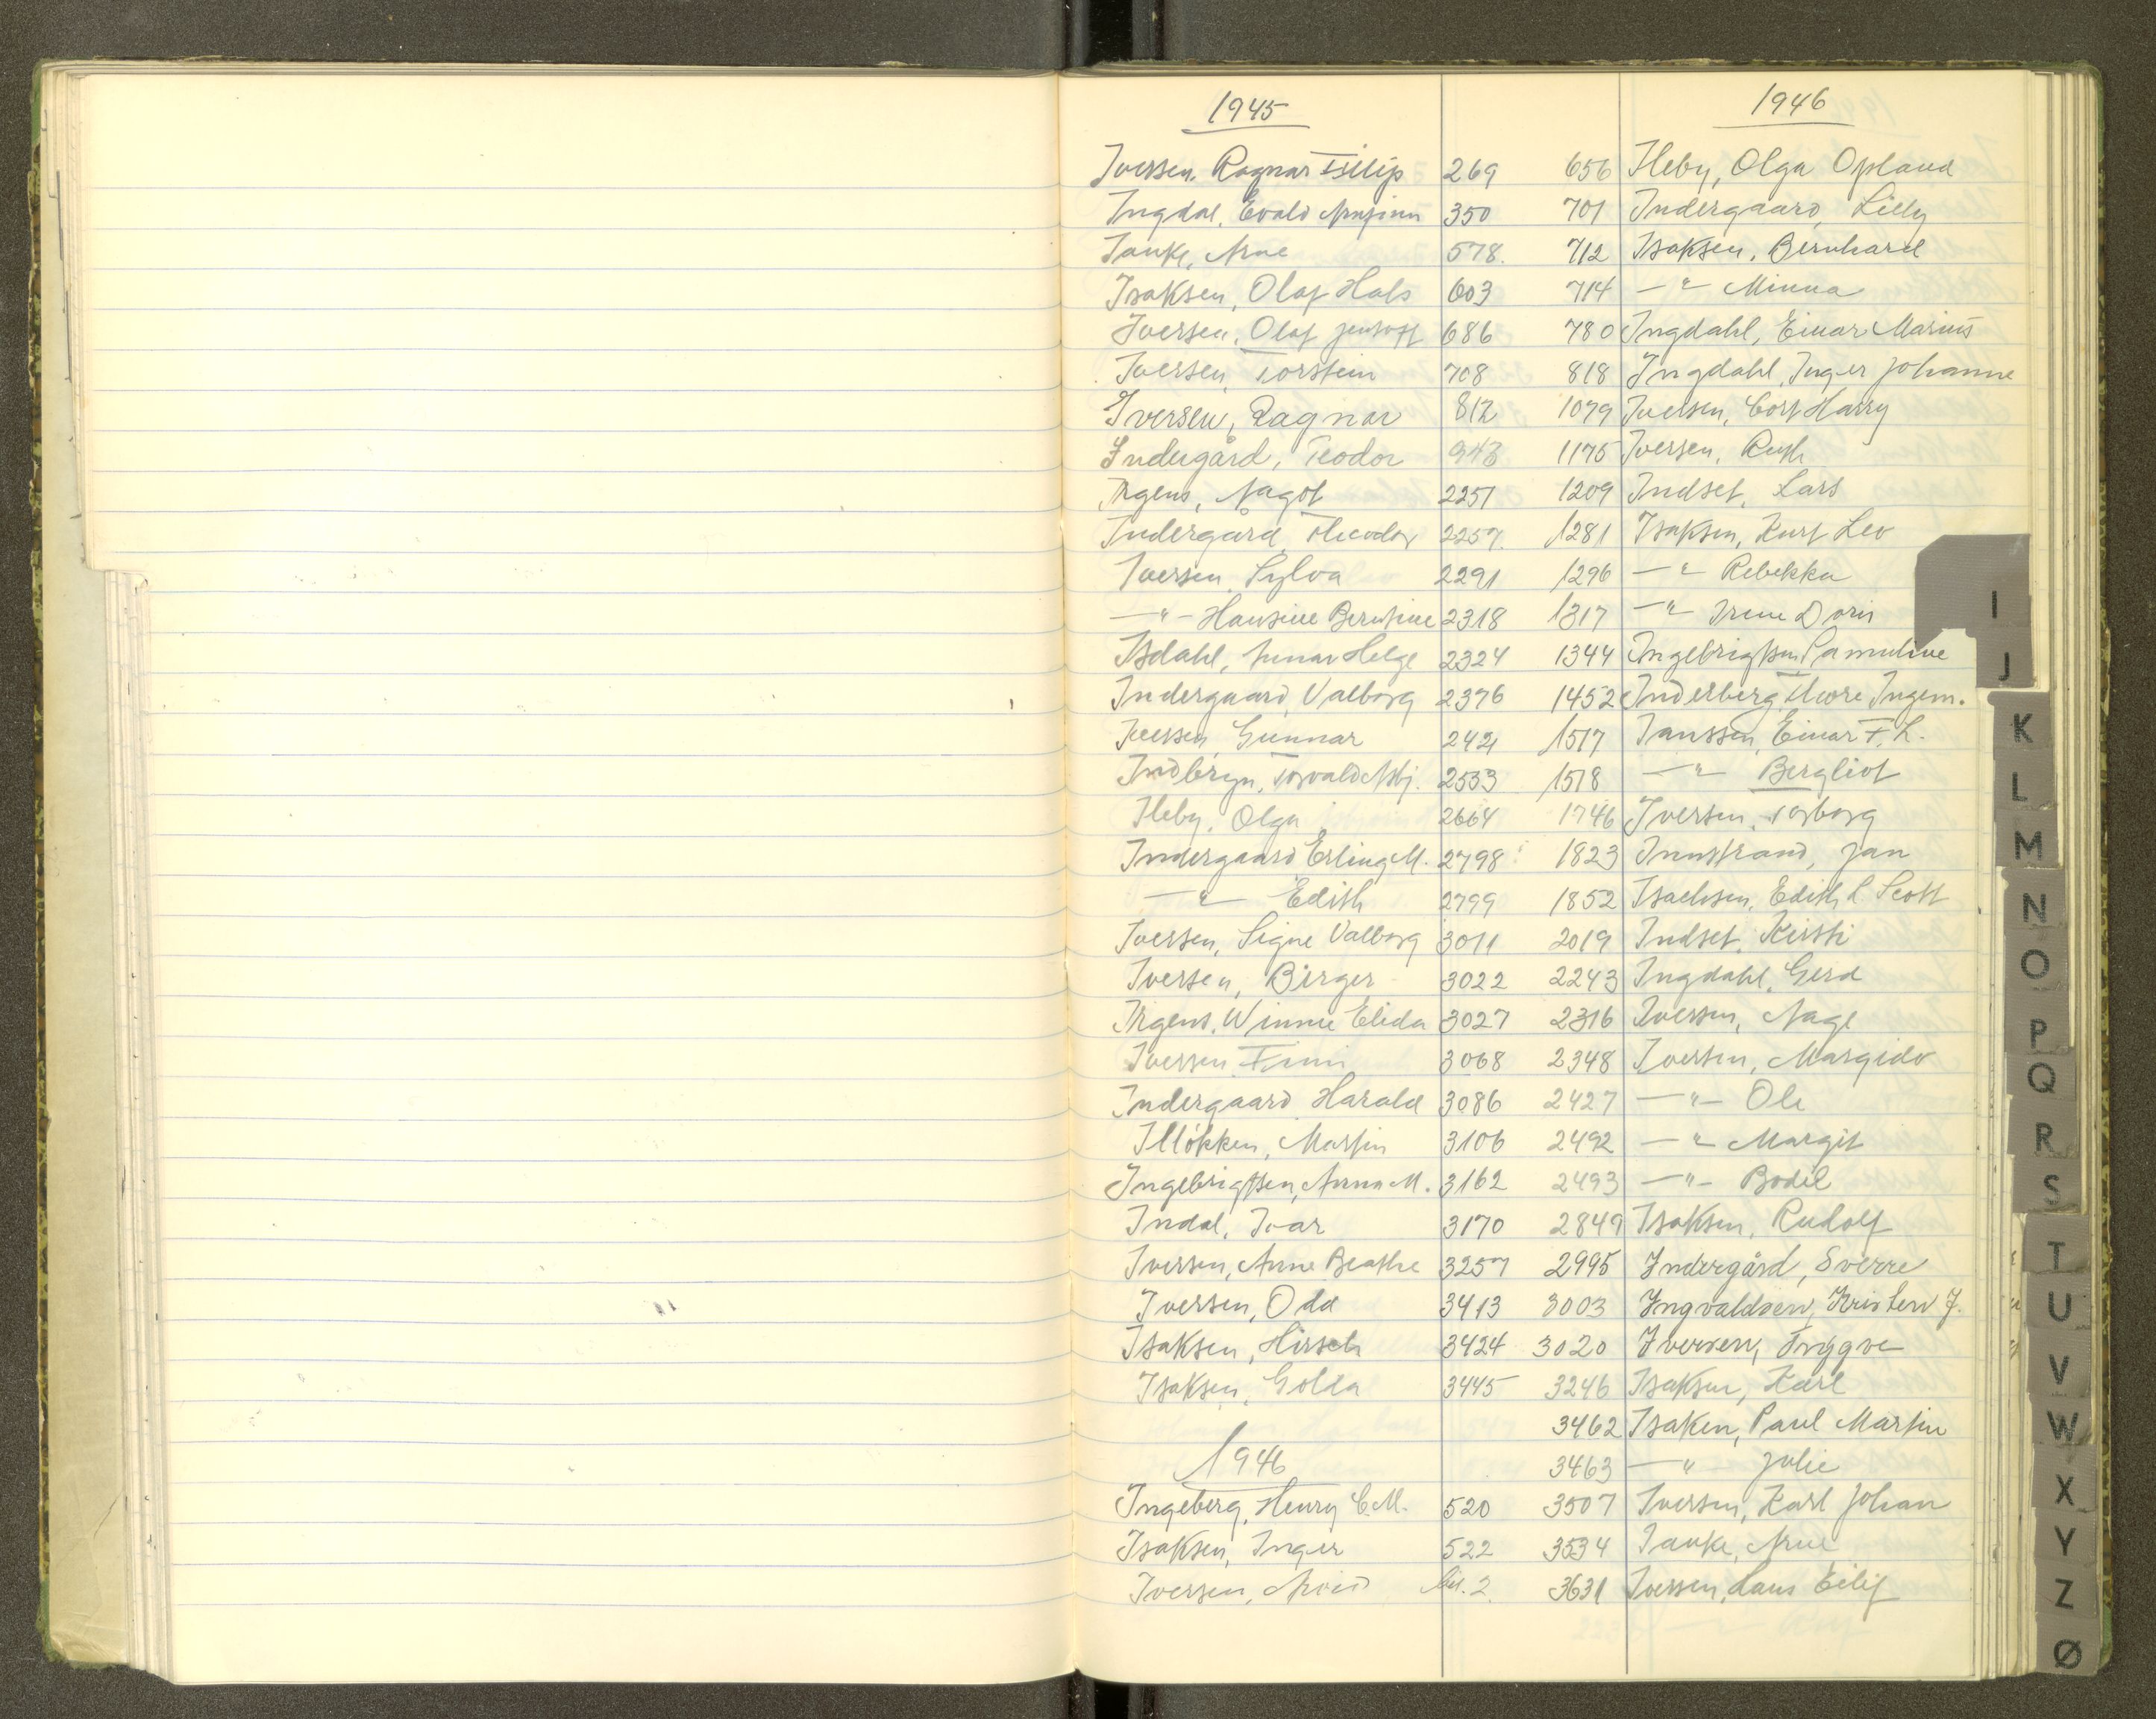 1945
Iversen, Ragnar Filip 269
Ingdal, Evald Arnfinn 350
Janke, Arne 578.
Isaksen, Olaf Hals 603
Iversen, Olaf 686
Iversen, Torstein 708
Iversen, Ragnar 812
Indergård, Teodor 943
Irgens, Aagot 2251
Indergård, Theodor 2257.
Iversen, Sylva 2291
—"— Hansine Berntine 2318
Isdahl, Gunnar Helge 2324
Indergaard, Valborg 2376
Iversen, Gunnar 2421
Indbryn, Torvald Asbj. 2533
Ileby, Olga 2664
Indergaard Erling M. 2798
—"— Edith 2799
Iversen, Signe Valborg 3011
Iversen, Birger 3022
Irgens, Winnie Elida 3027
Iversen, Finn 3068
Indergaard, Harald 3086
Illøkken, Martin 3106
Ingebrigtsen, Anna M. 3162
Indal, Ivar 3170
Iversen, Anne Beathe 3257
Iversen, Odd 3413
Isaksen, Hirsch 3424
Isaksen, Golda 3445
1946
Ingeberg, Henry C.M. 520
Isaksen, Inger 522
Iversen, Arvid 2.
1946
656 Ileby, Olga Opland
701 Indergaard, Lilly
712 Isaksen, Bernhard
714 —"— Minna
780 Ingdahl, Einar Marius
818 Ingdahl, Inger Johanne
1079 Iversen, Cort Harry
1175 Iversen, Ruth
1209 Indset, Lars
1281 Isaksen, Kurt Leo
1296 —"— Rebekka
1317 —"— Irene Doris
1344 Ingebrigtsen Pauline
1452 Inderberg, Thore Ingem.
1517 Janssen, Einar F. L.
1518 —"— Bergliot
1746 Iversen, Torborg
1823 Innstrand, Jan
1852 Isachsen, Edith L. Scott
2019 Indset, Kirsti
2243 Ingdahl, Gerd
2316 Iversen, Aage
2348 Iversen, Margido
2427 —"— Ole
2492 —"— Margit
2493 —"— Bodil
2849 Isaksen, Rudolf
2995 Indergård, Sverre
3003 Ingvaldsen, Kristen J.
3020 Iversen, Trygve
3246 Isaksen, Karl
3462 Isaken, Paul Martin
3463 —"— Julie
3507 Iversen, Karl Johan
3534 Janke, Arne
3631 Iversen, Hans Eilif
I
J
K
L
M
N
O
P
Q
R
S
T
U
V
W
X
Y
Z
Ø